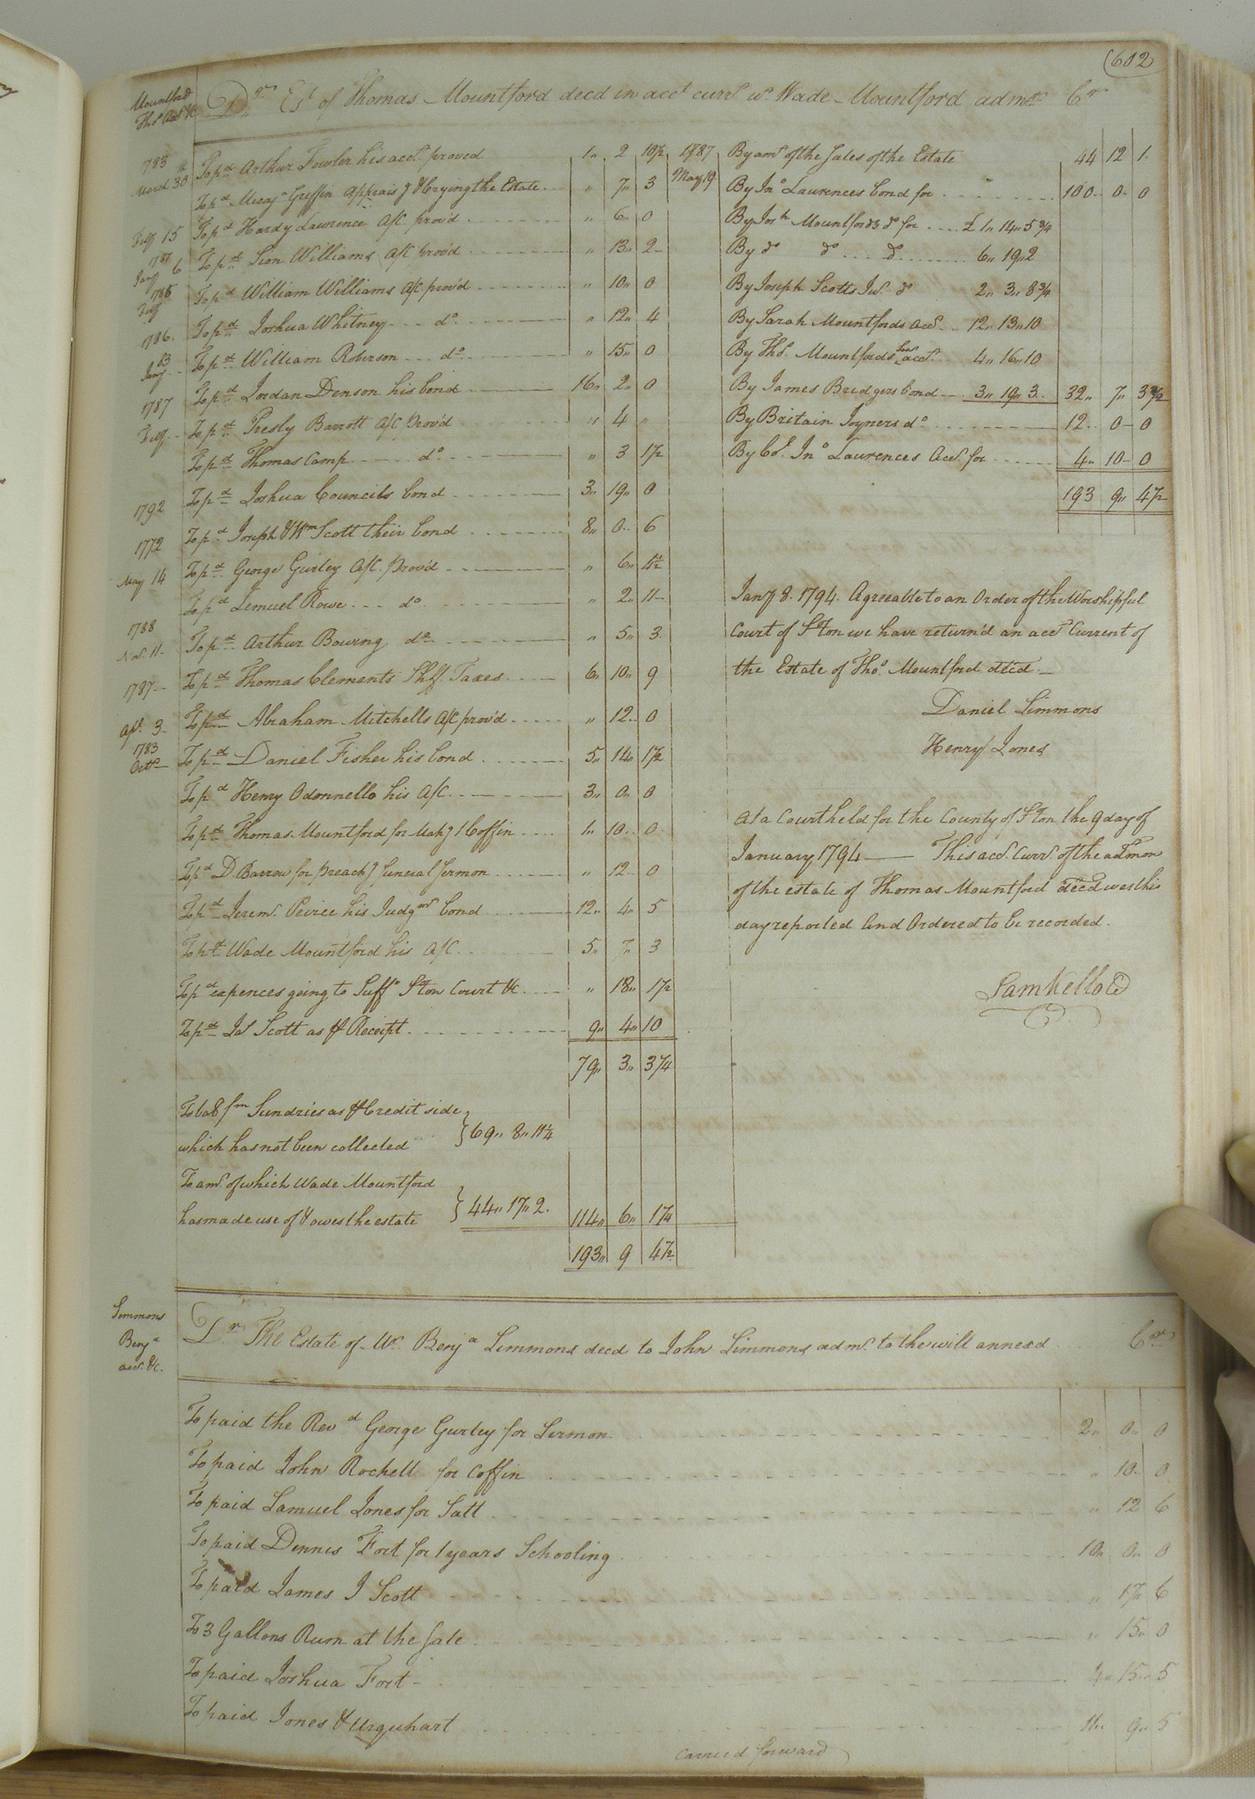 (602
Mountford
Tho.s Acct &c
Dr. Est. of Thomas Mountford decd in acct. curr.t wth Wade Mountford admr. Cr
1783
March 30th To pd Arthur Fowler his acct. proved 1 " 2 10½
To pd Micaj.a Griffin Apprais.g & Crying the Estate " 7 " 3
July 15 To pd Hardy Lawrence A/c prov'd " 6 " 0
Jany 6 To pd Sion Williams A/c prov'd " 13 " 2
To pd William Williams A/c prov'd " 10 " 0
1786. To pd Joshua Whitney do " 12 " 4
To pd William Roberson do " 15 " 0
1787 To pd Jordan Denson his bond 16 " 2 " 0
To pd Presly Barrott A/c Prov'd " 4 "
To pd Thomas Camp do " 3 1½
1792 To pd Joshua Councils bond 3 " 19 " 0
1772 To pd Joseph & Wm Scott their bond 8 " 0 " 6
May 14 To pd George Gurley A/c Prov'd " 6 " 4½
To pd Lemuel Rowe do " 2 " 11
1788
Nov. 11. To pd Arthur Bowing do " 5 " 3
1787 To pd Thomas Clements Shff Taxes 6 " 10 " 9
Apl. 3 To pd Abraham Mitchells A/c prov'd " 12 " 0
1783
Octo To pd Daniel Fisher his bond 5 " 14 " 1½
To pd Henry Odonnello his A/c 3 " 0 " 0
To pd Thomas Mountford for Mak.g 1 Coffin 1 " 10 " 0
To pd D Barrow for preach.g funeral Sermon " 12 " 0
To pd Jerem. Peirce his Judg.mt bond 12 " 4 " 5
To pd Wade Mountford his A/c 5 " 7 " 3
To pd expences going to Suff.o S.ton Court &c " 18 " 1½
To pd Jas Scott as pr Receipt 9 " 4 " 10
79 " 3 " 3¼
To bal fm Sundries as pr Credit side
which has not been collected } 69 " 8 " 11¼
To amt. of which Wade Mountford
has made use of & owes the estate } 44 " 17 " 2. 114 " 6 " 1¼
193 " 9 4½
1787
May 19 By amt of the Sales of the Estate 44 12 1
By Jno Laurences bond for 100 " 0 " 0
By Jos.h Mountfords do for £ 1 " 14 " 5¾
By do do do 6 " 19 " 2
By Joseph Scotts Jur. do 2 " 3 " 8¾
By Sarah Mountfords acct. 12 " 13 " 10
By Tho.s Mountfords Senr acct. 4 " 16 " 10
By James Bridgers bond 3 " 19 " 3 32 " 7 " 3½
By Britain Joyners do 12 " 0 " 0
By Col. Jno Laurences Acct. for 4 " 10 " 0
193 9 " 4½
Jany 8. 1794. Agreeable to an Order of the Worshipful
Court of S.ton we have return'd an acct Current of
the Estate of Tho.s Mountford decd
Daniel Simmons
Henry Jones
At a Court held for the County of S.ton the 9 day of
January 1794 This acct. Curr.t of the admon
of the estate of Thomas Mountford decd was this
day reported and Ordered to be recorded.
Sam Kello C
Simmons
Benja
acct. &c.
Dr The Estate of Mr. Benja Simmons decd to John Simmons admr. to the will annexed Cr
To paid the Revd George Gurley for Sermon 2 " 0 " 0
To paid John Rochell for coffin " 10 " 0
To paid Samuel Jones for Salt " 12 6
To paid Dennis Fort for 1 years Schooling 10 " 0 " 0
To paid James J Scott " 17 " 6
To 3 Gallons Rum at the Sale " 15 " 0
To paid Joshua Fort 4 " 15 " 5
To paid Jones & Urquhart 11 " 9 " 5
carried forward